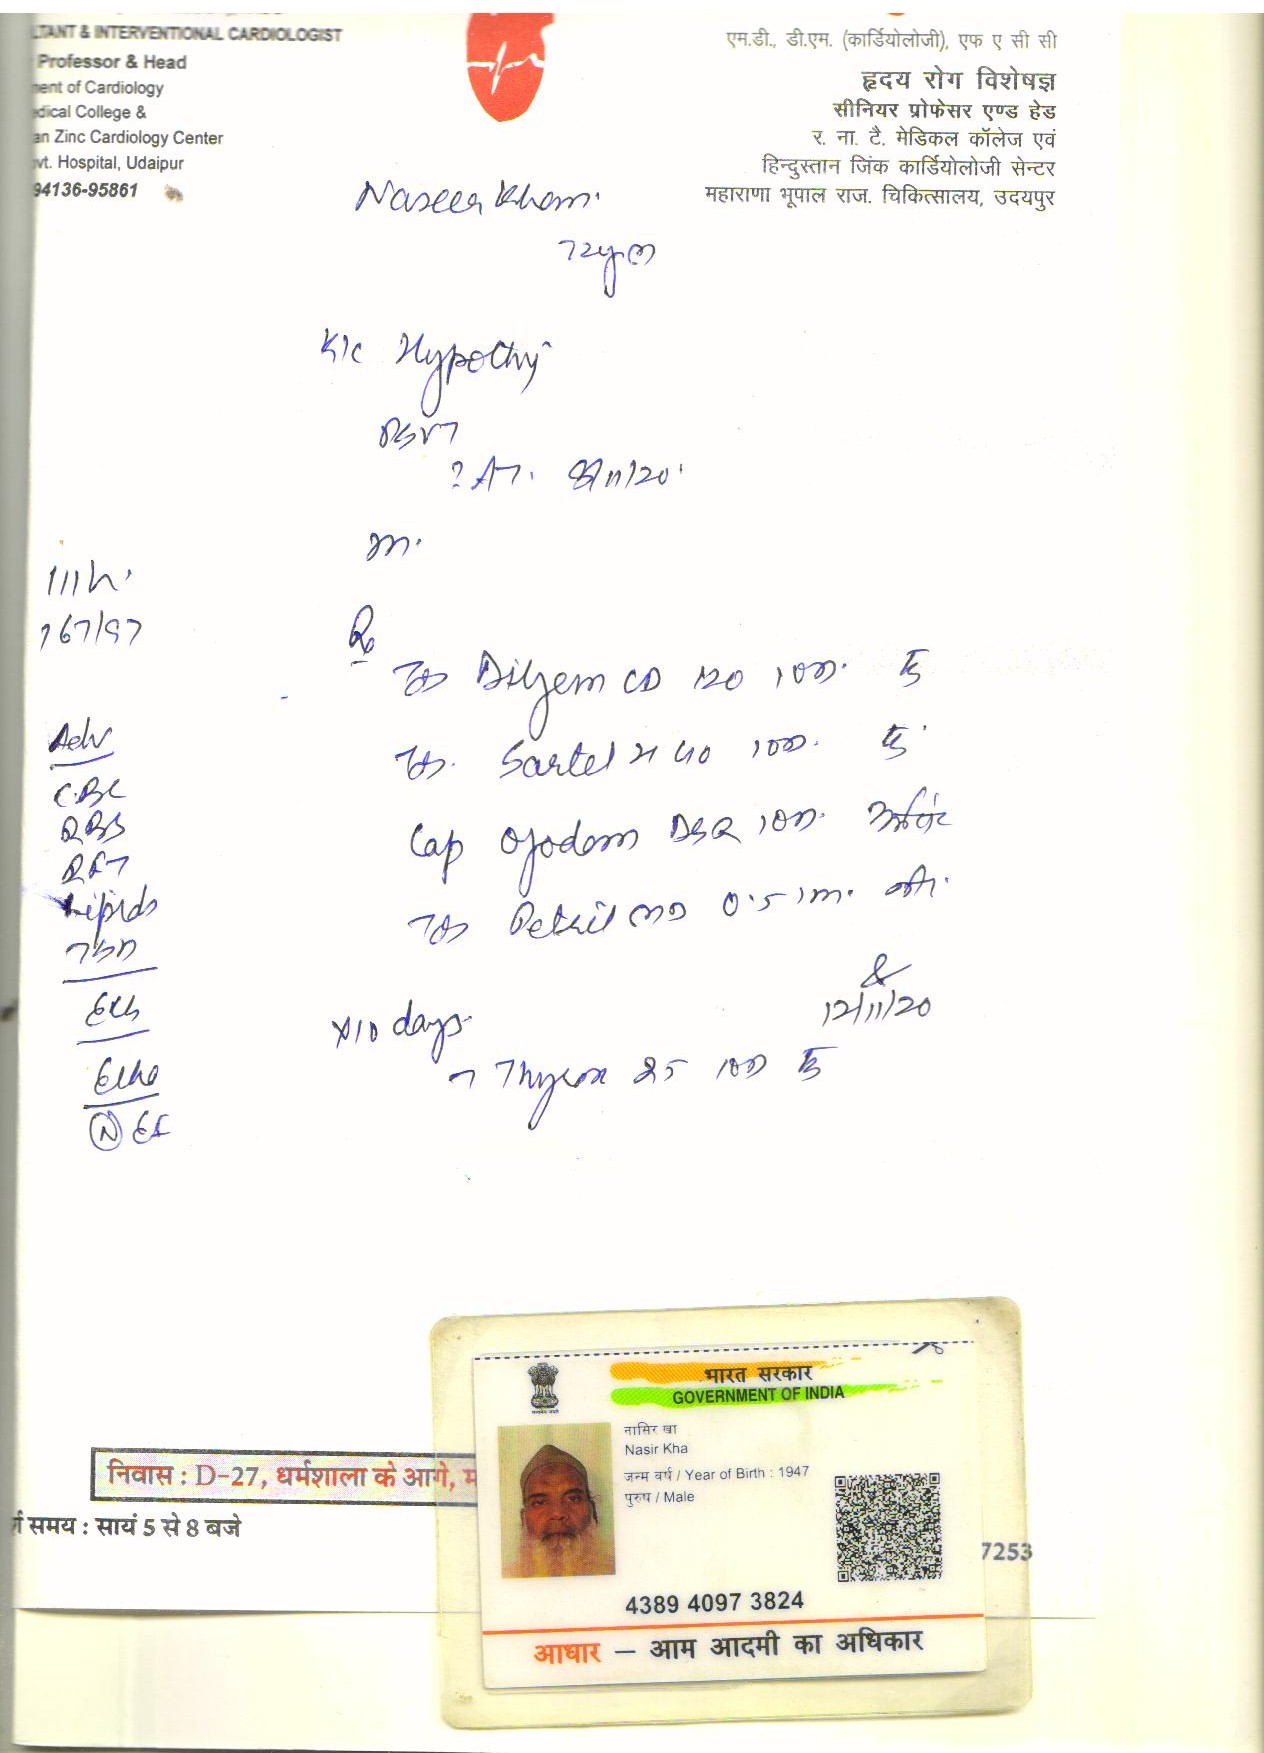 LTANT & INTERVENTIONAL CARDIOLOGIST
Professor & Head
ment of Cardiology
dical College &
an Zinc Cardiology Center
vt. Hospital, Udaipur
94136-95861
एम.डी., डी.एम. (कार्डियोलोजी), एफ ए सी सी
हृदय रोग विशेषज्ञ
सीनियर प्रोफेसर एण्ड हेड
र. ना. टै. मेडिकल कॉलेज एवं
हिन्दुस्तान जिंक कार्डियोलोजी सेन्टर
महाराणा भूपाल राज. चिकित्सालय, उदयपुर
Naseer Khan.
72y
K/c Hypothy
PSVT
? AT. 8/11/20
111/h.
167/97
Rx
Dilzem CD 120
Sartel 40
Cap DSR
Petril MD 0.5
x 10 days
12/11/20
T Thyrox 25
Adv
CBC
RBS
RFT
Lipids
TSH
Echo
(N) EF
निवास : D-27, धर्मशाला के आगे,
समय : सायं 5 से 8 बजे
7253
भारत सरकार
GOVERNMENT OF INDIA
नासिर खा
Nasir Kha
जन्म वर्ष / Year of Birth : 1947
पुरुष / Male
4389 4097 3824
आधार – आम आदमी का अधिकार